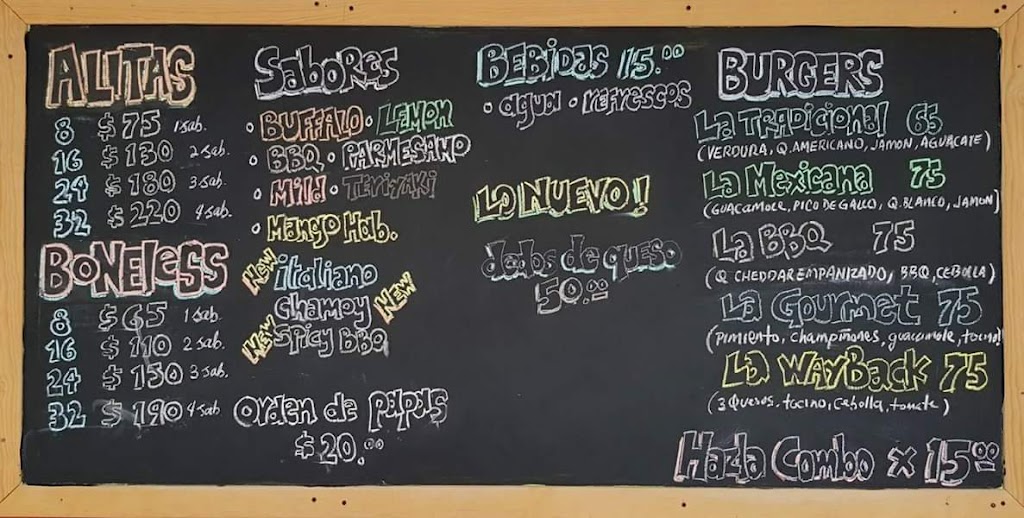 ALITAS
8 $75 1 sab.
16 $130 2-sab.
24 $180 3-sab.
32 $220 4-sab.
BONELESS
8 $65 1 sab.
16 $110 2-sab.
24 $150 3-sab.
32 $190 4-sab
SaboRes
• BUFFALO • LEMON
• BBQ • PARMESANO
• Mild • TERiYAKi
• Mango Hab.
NEW italiano
Chamoy NEW
NEW Spicy BBQ
Orden de papas
$20.00
BEBiDAS 15.00
• agua • refrescos
LO NUEVO!
dedos de queso
50.00
BURGERS
La TRADicional 65
(VERDURA, Q. AMERICANO, JAMON, AGUACATE)
La Mexicana 75
(GUACAMOLE, PICO DE GALLO, Q. BLANCO, JAMON)
La BBQ 75
(Q CHEDDAR EMPANIZADO, BBQ, CEBOLLA)
La Gourmet 75
(Pimiento, champiñones, guacamole, tocino)
La WAYBack 75
(3 Quesos, tocino, cebolla, tomate)
Hazla Combo x 15.00